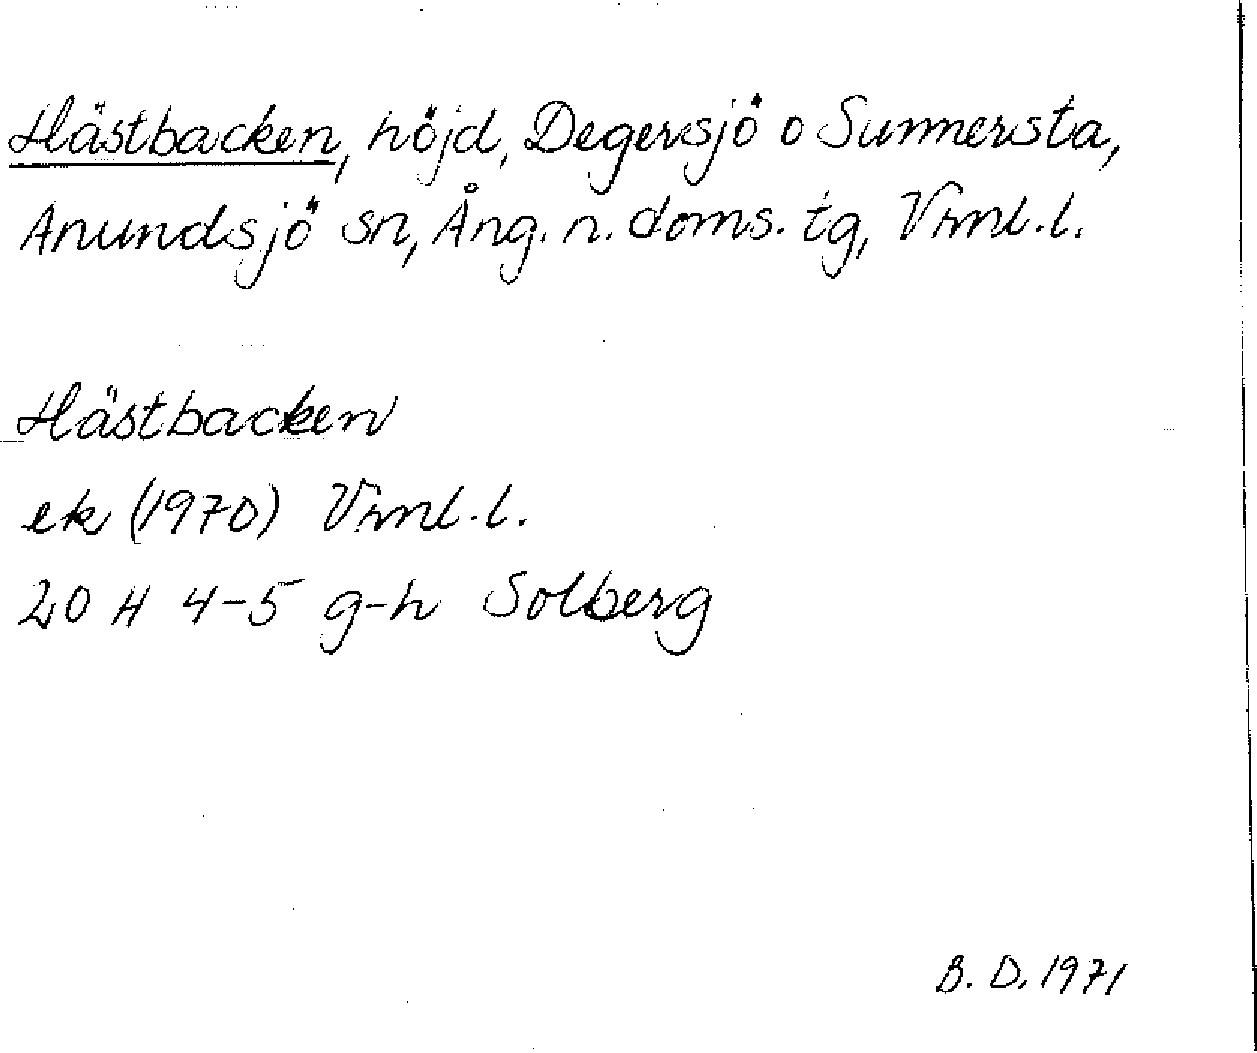 Hästbacken, höjd, Degersjö o Sunnersta,
Anundsjö sn, Ång. n. doms. tg, Vrnl.l.
Hästbacken
ek (1970) Vrnl.l.
20 H 4-5 g-h Solberg
B. D. 1971